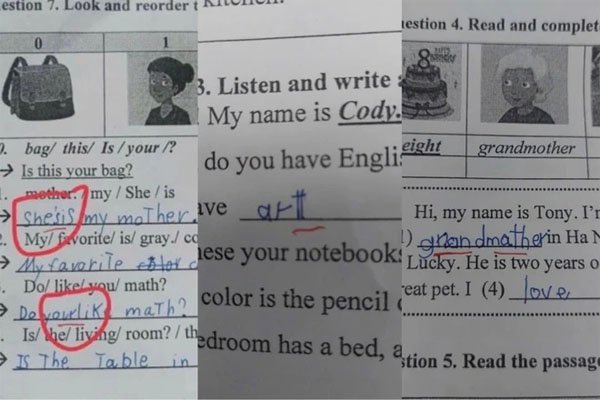 estion 7. Look and reorder t
0 1
0. bag/ this/ Is / your /?
→ Is this your bag?
1. mother. / my / She / is
→ she'sis my moTher.
2. My/ favorite/ is/ gray./ co
→ My favorite color c
Do/ like/ you/ math?
→ Do your lik math?
Is/ the/ living/ room? / th
→ IS The Table in
Kitchen.
3. Listen and write a
My name is Cody.
do you have Englis
ave art
hese your notebooks
color is the pencil c
edroom has a bed, a
estion 4. Read and complet
8
eight grandmother
Hi, my name is Tony. I'm
) grandmather in Ha N
Lucky. He is two years o
reat pet. I (4) love
stion 5. Read the passag